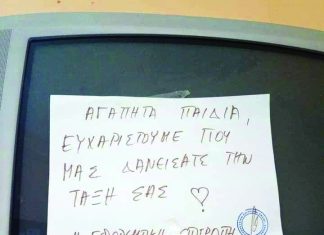 ΑΓΑΠΗΤΑ ΠΑΙΔΙΑ,
ΕΥΧΑΡΙΣΤΟΥΜΕ ΠΟΥ
ΜΑΣ ΔΑΝΕΙΣΑΤΕ ΤΗΝ
ΤΑΞΗ ΣΑΣ ♡
Η ΕΦΟΡΕΥΤΙΚΗ ΕΠΙΤΡΟΠΗ